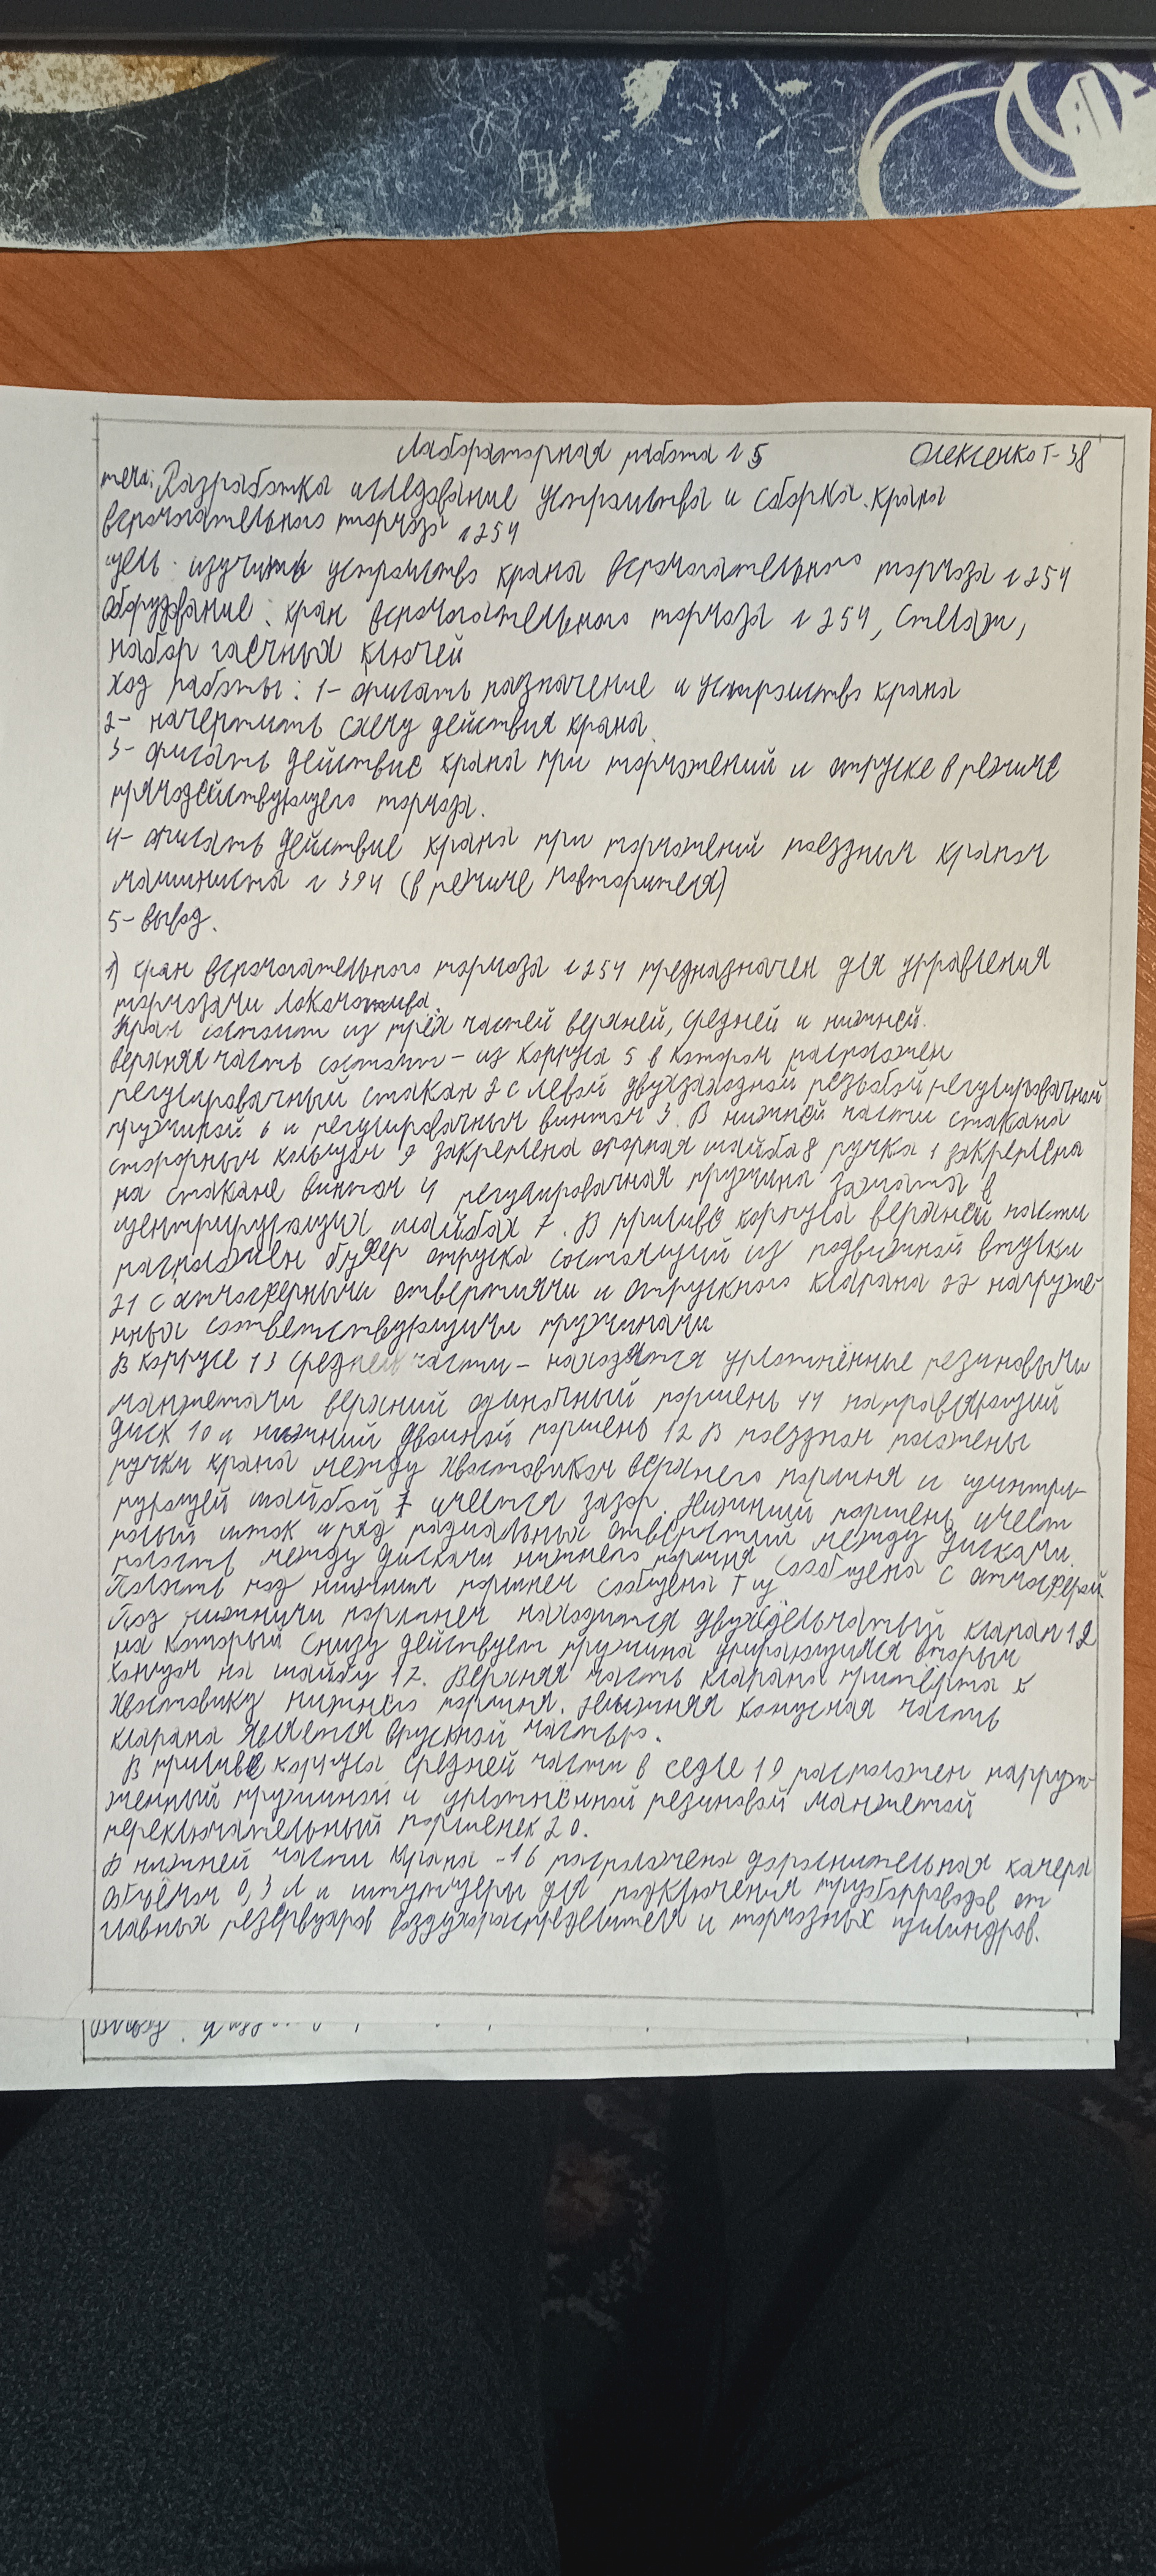 Лабораторная работа 15 Олексенко Т-38
тема: Разработка иследование устройства и сборка крана
вспомогательного тормоза 1254
цель: изучить устройство крана вспомогательного тормоза 1254
оборудование: кран вспомогательного тормоза 1254, стелаж,
набор гаечных ключей
ход работы: 1- описать назначение и устройство крана
2- начертить схему действия крана.
3- описать действие крана при торможений и отпуске в режиме
прямодействующего тормоза.
4- описать действие крана при торможений поездным краном
машиниста 1 394 (в режиме повторителя)
5- вывод.
1) кран вспомогательного тормоза 1254 предназначен для управления
тормозами локомотива.
Кран состоит из трёх частей верхней, средней и нижней.
верхняя часть состоит - из корпуса 5 в котором расположен
регулировачный стакан 2 с левой двухзаходной резьбой регулировачной
пружиной 6 и регулировачным винтом 3. В нижней части стакана
стопорным кольцом 9 закреплена опорная шайба 8 ручка 1 закреплена
на стакане винтом 4 регулировачная пружина зажата в
центрирующих шайбах 7. В приливе корпуса верхней части
расположен буфер отпуска состоящий из подвижной втулки
21 с атмосферными отверстиями и отпускного клапана 22 нагруже-
нных соответствующими пружинами
В корпусе 13 средней части - находятся уплотнённые резиновыми
манжетами верхний одиночный поршень 11 направляющий
диск 10 и нижний двойной поршень 12 В поездном положены
ручки крана между хвостовиком верхнего поршня и центри-
рующей шайбой 7 имеется зазор. Нижний поршень имеет
полый шток и ряд радиальных отверстий между дисками.
полость между дисками нижнего поршня сообщена с атмосферой.
Полость под нижним поршнем сообщена Тц
Под нижними поршнем находится двухседельчатый клапан 12
на который снизу действует пружина упирающаяся вторым
концом на шайбу 17. Верхняя часть клапана притёрта к
хвостовику нижнего поршня. Нижняя конусная часть
клапана является впускной частью.
В приливе корпуса средней части в седле 19 расположен нагруж-
женный пружиной и уплотнённой резиновой манжетой
переключательный поршенек 20.
В нижней части крана - 16 расположена дополнительная камера
объёмом 0,3 л и штуцеры для подключения трубопроводов от
главных резервуаров воздухораспределителя и тормозных цилиндров.